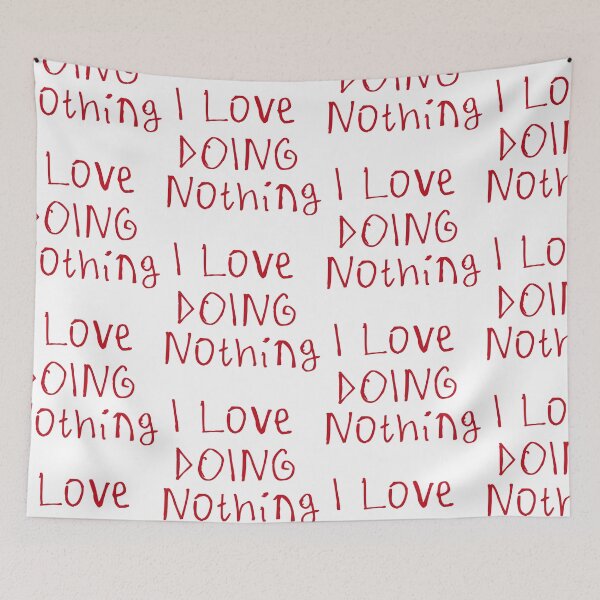 DOING
othing
Love
DOING
othing
Love
DOING
othing
Love
I Love
DOING
Nothing
I Love
DOING
Nothing
I Love
DOING
Nothing
DOING
Nothing
I Love
DOING
Nothing
I Love
DOING
Nothing
I Love
I Lo
DOIN
Noth
I Lo
DOIN
Noth
I Lo
DOIN
Noth